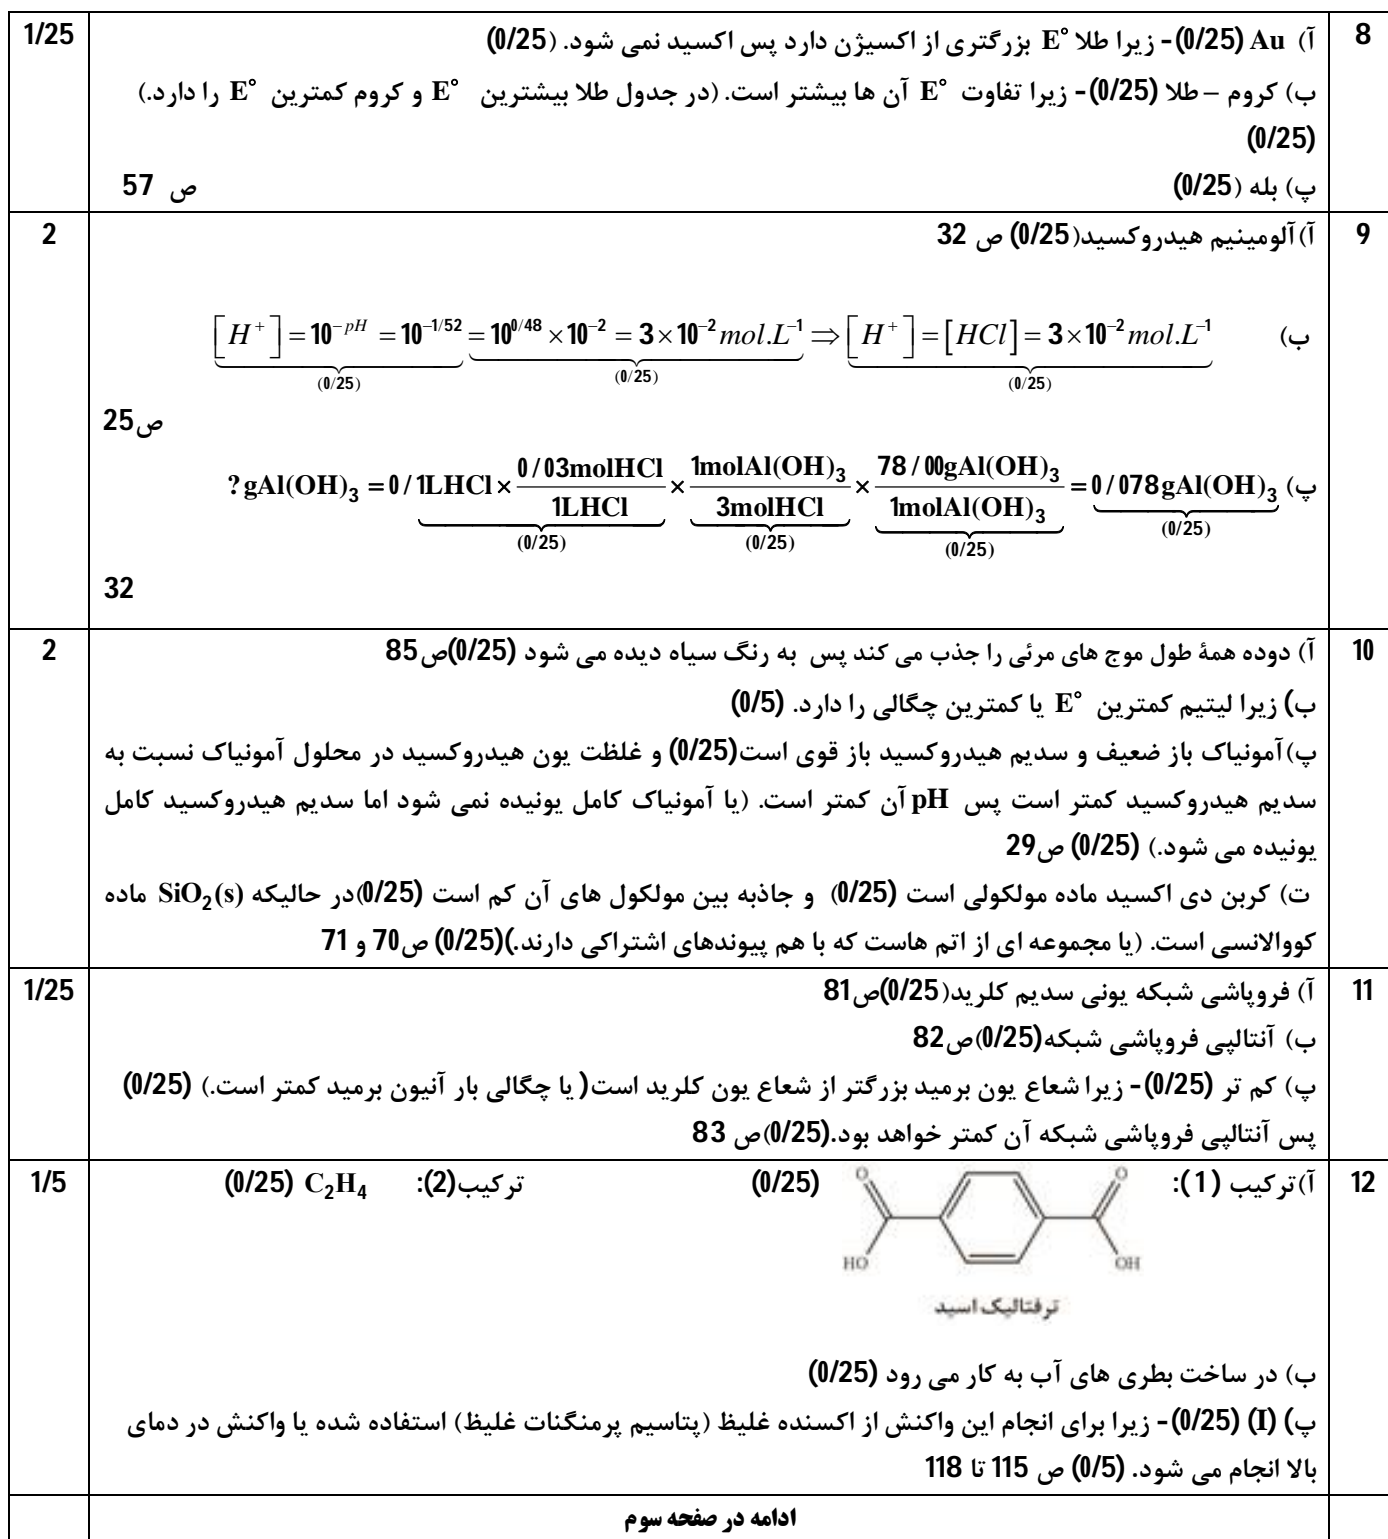 8
1/25
آ) Au (0/25)- زیرا طلا E° بزرگتری از اکسیژن دارد پس اکسید نمی شود. (0/25)
ب) کروم – طلا (0/25)- زیرا تفاوت E° آن ها بیشتر است. (در جدول طلا بیشترین E° و کروم کمترین E° را دارد.)
(0/25)
پ) بله (0/25) ص 57
9
2
آ)آلومینیم هیدروکسید(0/25) ص 32
ب) [H⁺] = 10^{-pH} = 10^{-1/52} = 10^{0/48} × 10^{-2} = 3×10^{-2} mol.L^{-1} ⇒ [H⁺] = [HCl] = 3×10^{-2} mol.L^{-1}
(0/25) (0/25) (0/25)
ص25
پ) ? gAl(OH)₃ = 0/1LHCl × 0/03molHCl/1LHCl × 1molAl(OH)₃/3molHCl × 78/00gAl(OH)₃/1molAl(OH)₃ = 0/078gAl(OH)₃
(0/25) (0/25) (0/25) (0/25)
32
10
2
آ) دوده همۀ طول موج های مرئی را جذب می کند پس به رنگ سیاه دیده می شود (0/25)ص85
ب) زیرا لیتیم کمترین E° یا کمترین چگالی را دارد. (0/5)
پ)آمونیاک باز ضعیف و سدیم هیدروکسید باز قوی است(0/25) و غلظت یون هیدروکسید در محلول آمونیاک نسبت به
سدیم هیدروکسید کمتر است پس pH آن کمتر است. (یا آمونیاک کامل یونیده نمی شود اما سدیم هیدروکسید کامل
یونیده می شود.) (0/25) ص29
ت) کربن دی اکسید ماده مولکولی است (0/25) و جاذبه بین مولکول های آن کم است (0/25)در حالیکه SiO₂(s) ماده
کووالانسی است. (یا مجموعه ای از اتم هاست که با هم پیوندهای اشتراکی دارند.)(0/25) ص70 و 71
11
1/25
آ) فروپاشی شبکه یونی سدیم کلرید(0/25)ص81
ب) آنتالپی فروپاشی شبکه(0/25)ص82
پ) کم تر (0/25)- زیرا شعاع یون برمید بزرگتر از شعاع یون کلرید است( یا چگالی بار آنیون برمید کمتر است.) (0/25)
پس آنتالپی فروپاشی شبکه آن کمتر خواهد بود.(0/25)ص 83
12
1/5
آ)ترکیب (1): (0/25) ترکیب(2): C₂H₄ (0/25)
O O
HO OH
ترفتالیک اسید
ب) در ساخت بطری های آب به کار می رود (0/25)
پ) (I) (0/25)- زیرا برای انجام این واکنش از اکسنده غلیظ (پتاسیم پرمنگنات غلیظ) استفاده شده یا واکنش در دمای
بالا انجام می شود. (0/5) ص 115 تا 118
ادامه در صفحه سوم